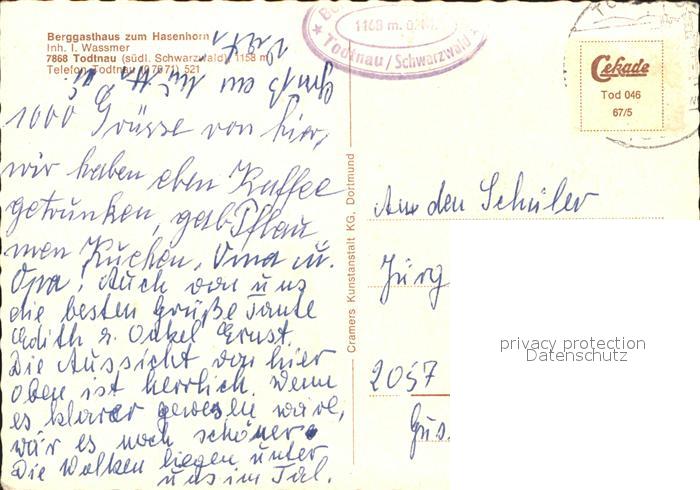 Berggasthaus zum Hasenhorn
Inh. I. Wassmer
7868 Todtnau (südl. Schwarzwald) 1158 m
Telefon Todtnau (07671) 521
1168 m. ü.M.
Todtnau / Schwarzwald
Cekade
Tod 046
67/5
1000 Grüsse von hier,
wir haben eben Kaffee
getrunken, gab Pflau
men Kuchen, Oma u.
Opa, Auch von uns
die besten Grüße Tante
Edith u. Onkel Ernst.
Die Aussicht von hier
oben ist herrlich. Wenn
es klarer gewesen wäre,
wär es noch schöner.
Die Wolken liegen unter
uns im Tal.
Cramers Kunstanstalt KG, Dortmund
An den Schüler
Jürg
2057
privacy protection
Datenschutz